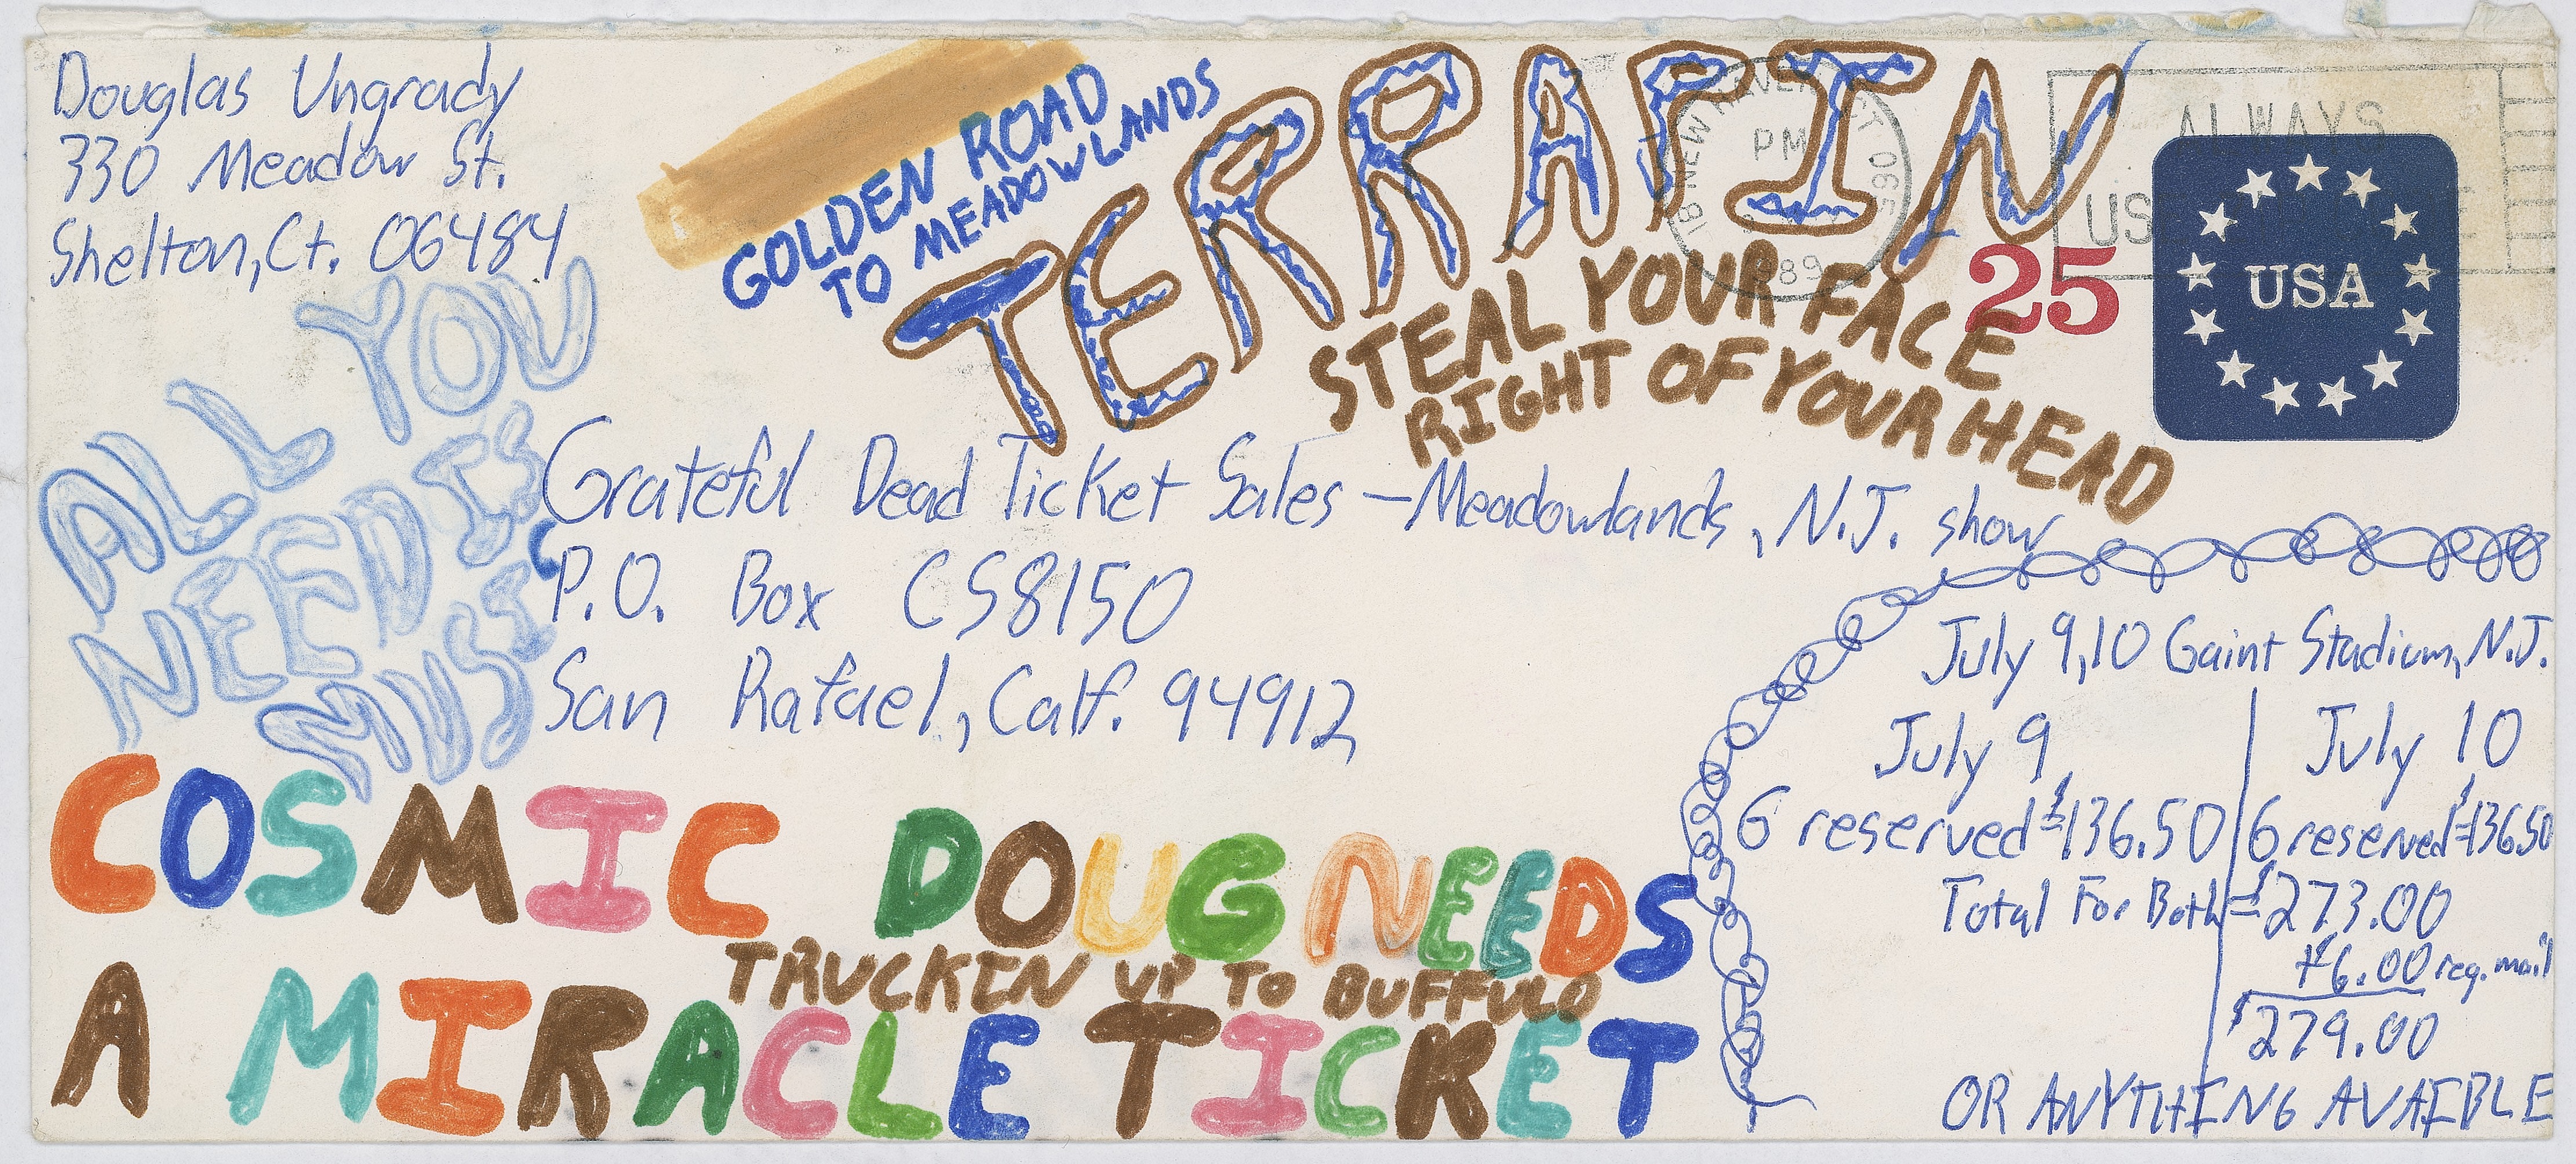 Douglas Ungrady
330 Meadow St.
Shelton, Ct. 06484
GOLDEN ROAD
TO MEADOWLANDS
TERRAPIN
STEAL YOUR FACE
RIGHT OF YOUR HEAD
NEW HAVEN CT
PM
1989
ALWAYS
US
25
USA
ALL YOU
NEED IS
MUSIC
Grateful Dead Ticket Sales - Meadowlands, N.J. show
P.O. Box CS8150
San Rafael, Calf. 94912
July 9,10 Gaint Stadium, N.J.
July 9
6 reserved = $136.50
July 10
6 reserved = $136.50
Total For Both = $273.00
+6.00 reg. mail
$279.00
OR ANYTHING AVAIBLE
COSMIC DOUG NEEDS
TRUCKIN UP TO BUFFULO
A MIRACLE TICKET